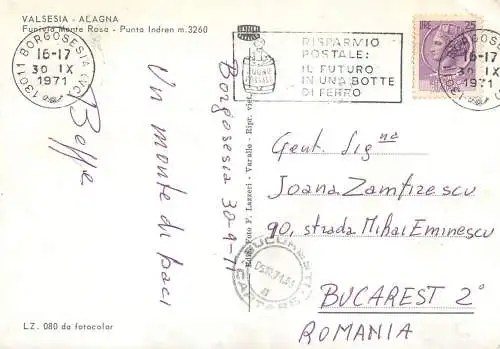 VALSESIA - ALAGNA
Funivia Monte Rosa - Punta Indren m.3260
13011 BORGOSESIA (VC)
16-17
30 IX
1971
RISPARMIO
POSTALE:
IL FUTURO
IN UNA BOTTE
DI FERRO
BUONI
POSTALI
LIRE 25
16-17
30 IX
1971
Borgosesia 30-9-71
Un monte di baci
Beppe
Ediz. Foto F. Lazzeri - Varallo - Ripr. viet.
Gent. Sig.na
Joana Zamfirescu
90, strada Mihai Eminescu
BUCAREST 2°
ROMANIA
BUCURESTI
CARTARE
LZ. 080 da fotocolor